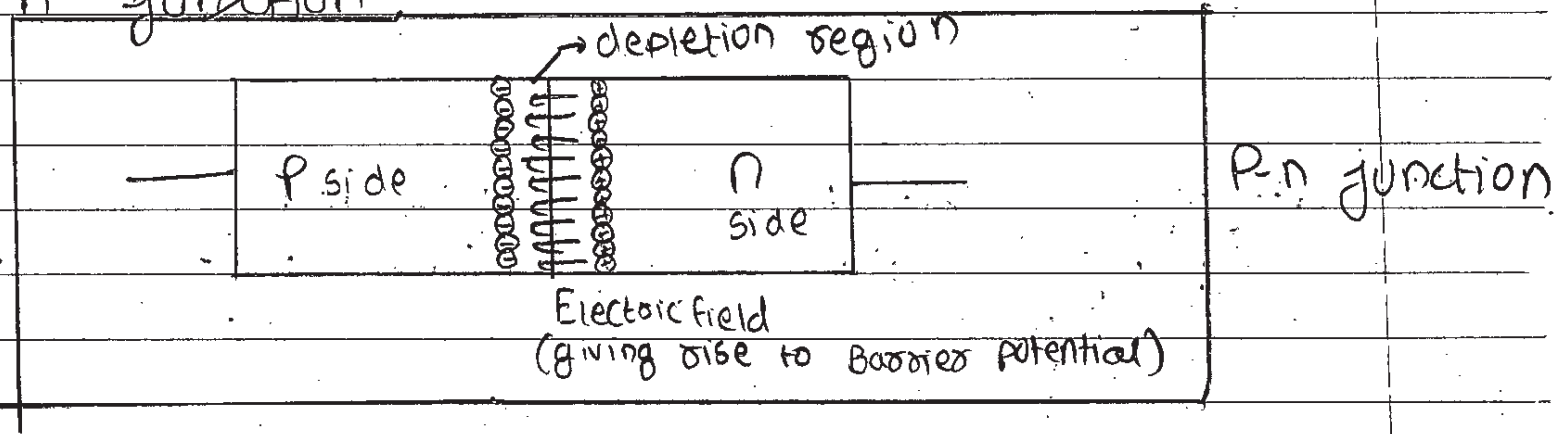 n junction
depletion region
P side
n
side
P-n junction
Electric field
(giving rise to Barrier potential)